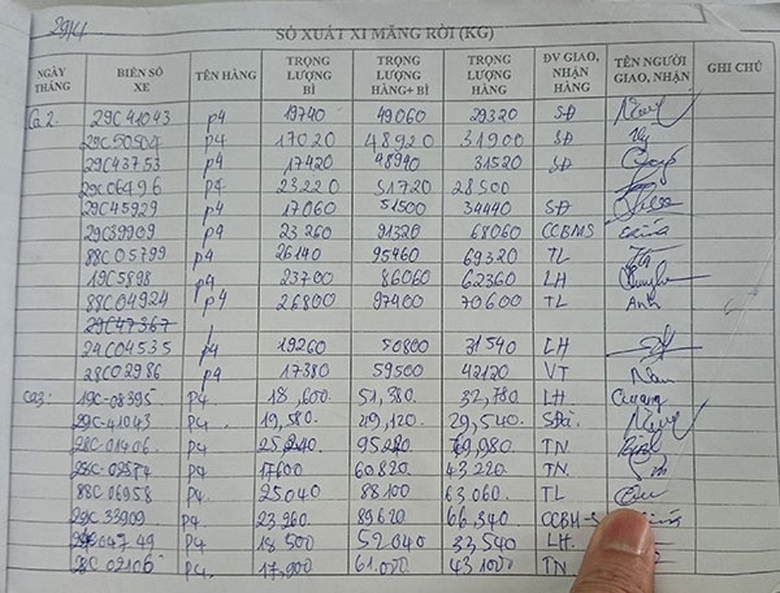 29/4
SỔ XUẤT XI MĂNG RỜI (KG)
NGÀY THÁNG BIỂN SỐ XE TÊN HÀNG TRỌNG LƯỢNG BÌ TRỌNG LƯỢNG HÀNG+ BÌ TRỌNG LƯỢNG HÀNG ĐV GIAO, NHẬN HÀNG TÊN NGƯỜI GIAO, NHẬN GHI CHÚ
Ca 2. 29C41043 p4 19740 49060 29320 SĐ
29C50504 p4 17020 48920 31900 SĐ
29C43753 p4 17420 48940 31520 SĐ
29C06496 p4 23220 51720 28500
29C45929 p4 17060 51500 34440 SĐ
29C39909 p4 23260 91320 68060 CCBMS
88C05799 p4 26140 95460 69320 TL
19C5898 p4 23700 86060 62360 LH
88C04924 p4 26800 97400 70600 TL Anh
29C47367
24C04535 p4 19260 50800 31540 LH
28C02986 p4 17380 59500 42120 VT Năm
Ca3: 19C-08395 P4. 18,600. 51,380. 32,780 LH
29C-41043 P4. 19,580. 49,120. 29,540. SĐà.
28C-01406 P4. 25240 95220 69,980 TN
28C-02574 P4. 17600 60820 43220 TN.
88C 06958 P4. 25040 88100 63060. TL
29C 33909 P4 23260. 89620 66,340 CCBM-S
04749 P4 18500 52040 33540 LH.
28C 02106 P4. 17,900 61.000 43100 TN